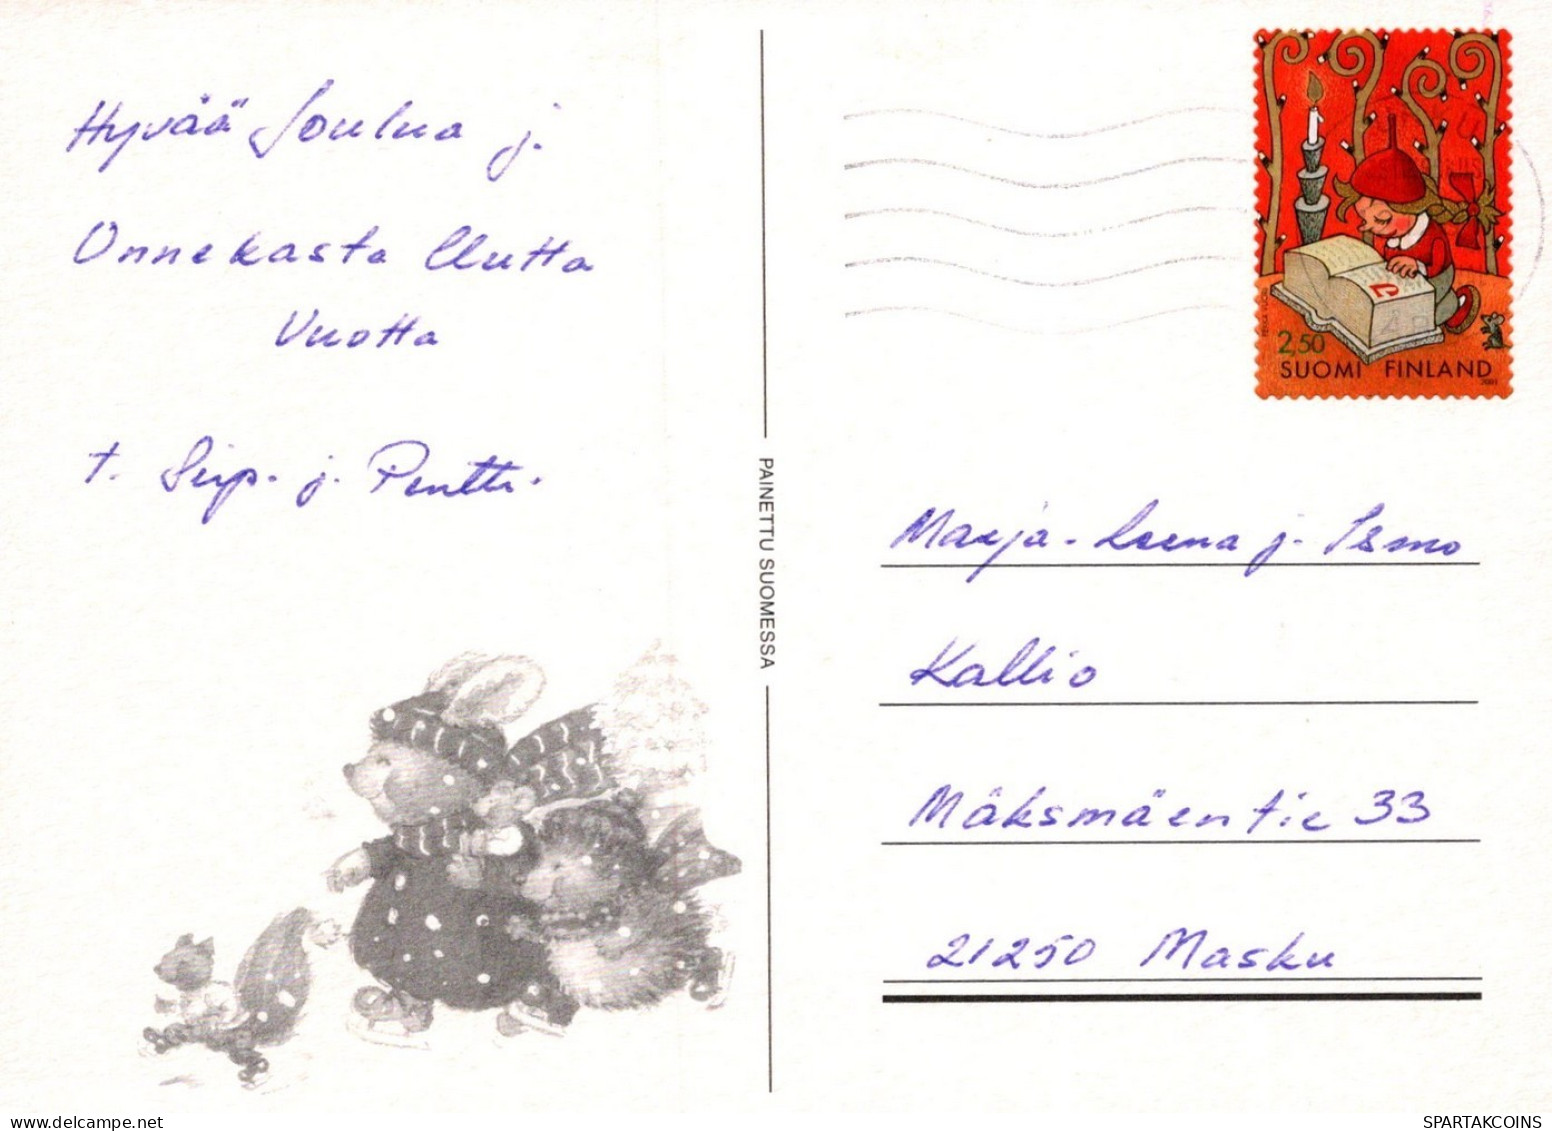 Hyvää Joulua j.
Onnekasta Uutta
Vuotta
t. Seip. j. Pentti.
PAINETTU SUOMESSA
2,50
SUOMI FINLAND
2001
Marja-Leena j. Ismo
Kallio
Mäksmäentie 33
21250 Masku
SPARTAKCOINS